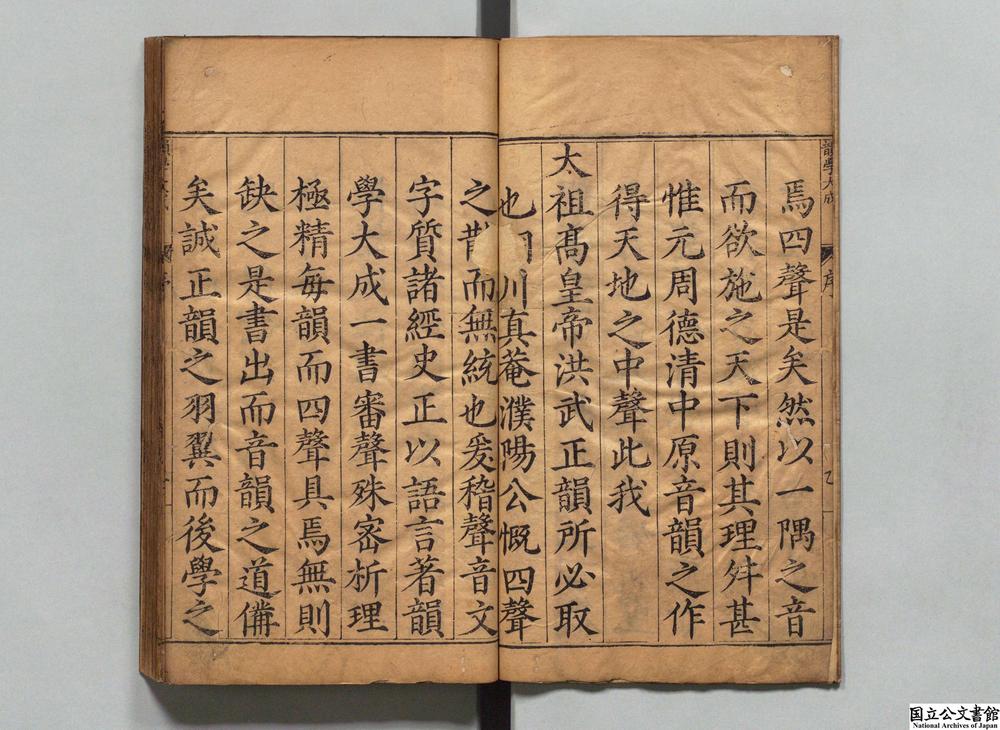 焉四聲是矣然以一隅之音
而欲施之天下則其理舛甚
惟元周德清中原音韻之作
得天地之中聲此我
太祖髙皇帝洪武正韻所必取
也 川真菴濮陽公慨四聲
之散而無統也爰稽聲音文
字質諸經史正以語言著韻
學大成一書審聲殊宻析理
極精每韻而四聲具焉無則
缺之是書出而音韻之道備
矣誠正韻之羽翼而後學之
韻學大成
序
国立公文書館
National Archives of Japan